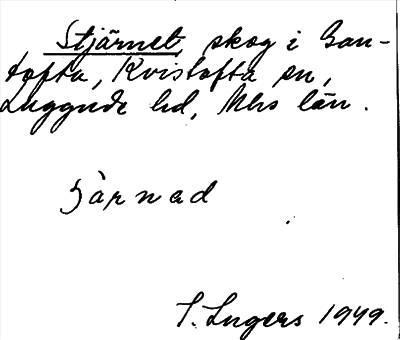 Stjärnet, skog i Gan-
tofta, Kvistofta sn,
Luggude hd, Mhs län.
särnad
I. Ingers 1949.